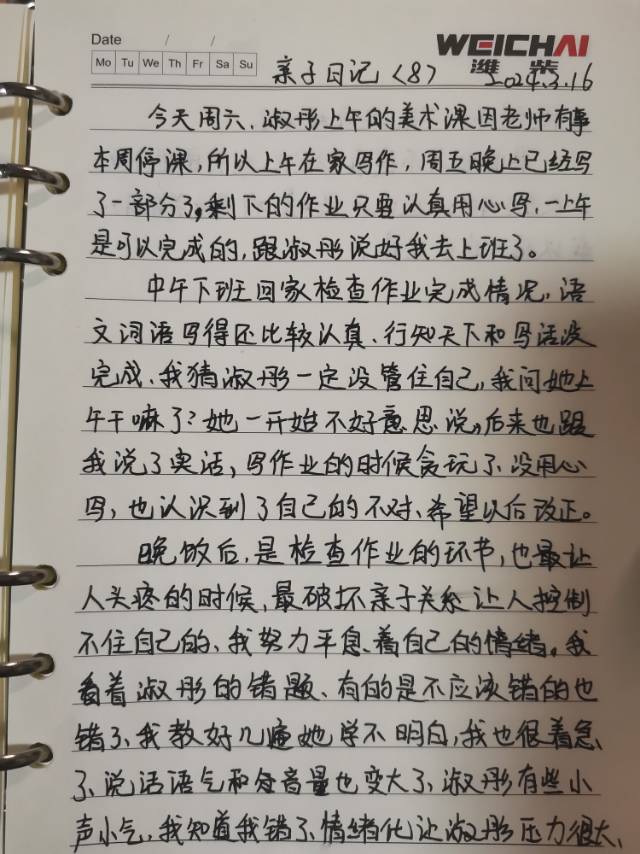 Date / /
WEICHAI
潍柴
Mo Tu We Th Fr Sa Su
亲子日记〈8〉 2024.3.16
今天周六,淑彤上午的美术课因老师有事
本周停课,所以上午在家写作,周五晚上已经写
了一部分了,剩下的作业只要认真用心写,一上午
是可以完成的,跟淑彤说好我去上班了。
中午下班回家检查作业完成情况,语
文词语写得还比较认真、行知天下和写话没
完成、我猜淑彤一定没管住自己,我问她上
午干嘛了?她一开始不好意思说,后来也跟
我说了实话,写作业的时候贪玩了、没用心
写,也认识到了自己的不对、希望以后改正。
晚饭后,是检查作业的环节,也最让
人头疼的时候,最破坏亲子关系让人控制
不住自己的、我努力平息、着自己的情绪。我
看着淑彤的错题、有的是不应该错的也
错了、我教好几遍她学不明白,我也很着急、
了、说话语气和分音量也变大了、淑彤有些小
声小气、我知道我错了、情绪化让淑彤压力很大、